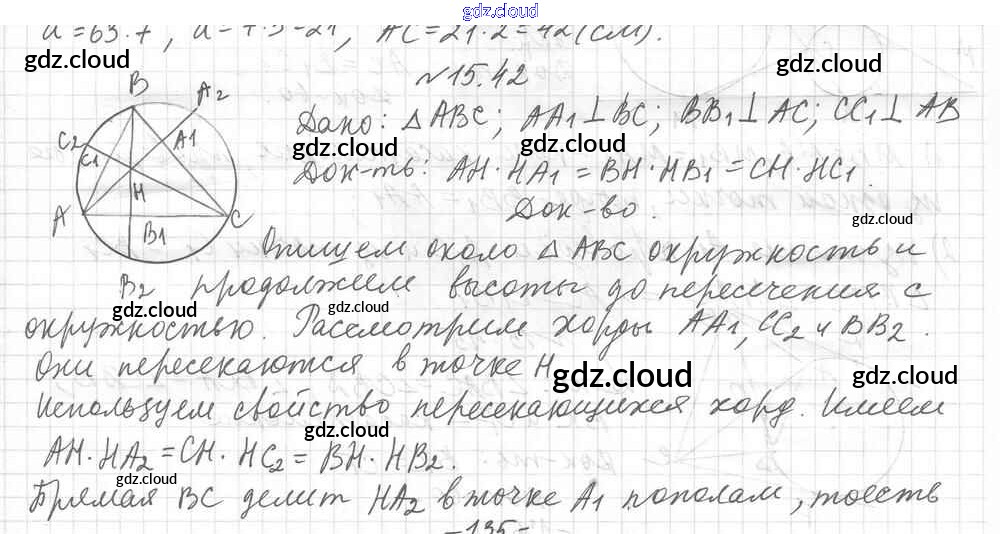 gdz.cloud
a = 63:7, a - 7·3=21, AC = 21·2=42 (см).
gdz.cloud
gdz.cloud
№15.42
B
A2
C2
C1
A1
H
A
C
B1
B2
Дано: △ABC; AA1⊥BC; BB1⊥AC; CC1⊥AB
gdz.cloud
gdz.cloud
Док-ть: AH·HA1=BH·HB1=CH·HC1.
Док-во.
gdz.cloud
Опишем около △ABC окружность и
продолжаем высоты до пересечения с
gdz.cloud
gdz.cloud
окружностью. Рассмотрим хорды AA1, CC2 и BB2.
Они пересекаются в точке H
gdz.cloud
gdz.cloud
gdz.cloud
Используем свойство пересекающихся хорд. Имеем
gdz.cloud
AH·HA2=CH·HC2=BH·HB2.
gdz.cloud
Прямая BC делит HA2 в точке A1 пополам, тоесть
-135-